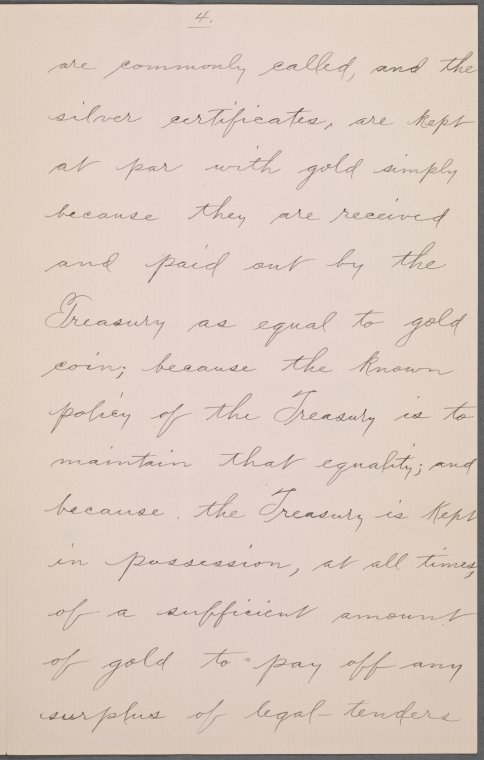 4.
are commonly called, and the
silver certificates, are kept
at par with gold simply
because they are received
and paid out by the
Treasury as equal to gold
coin; because the known
policy of the Treasury is to
maintain that equality; and
because the Treasury is kept
in possession, at all times,
of a sufficient amount
of gold to pay off any
surplus of legal-tenders